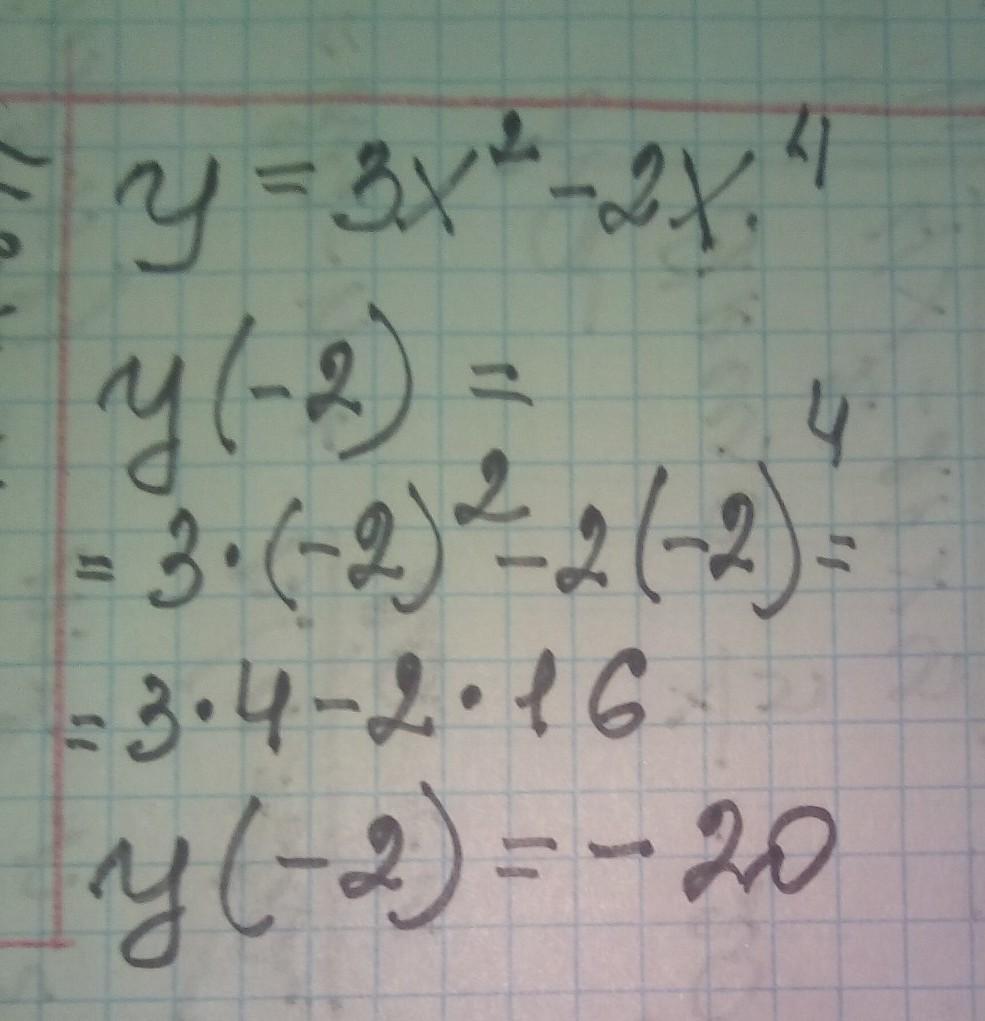 y = 3x² - 2x⁴
y(-2) =
= 3·(-2)² - 2(-2)⁴ =
= 3·4 - 2·16
y(-2) = -20